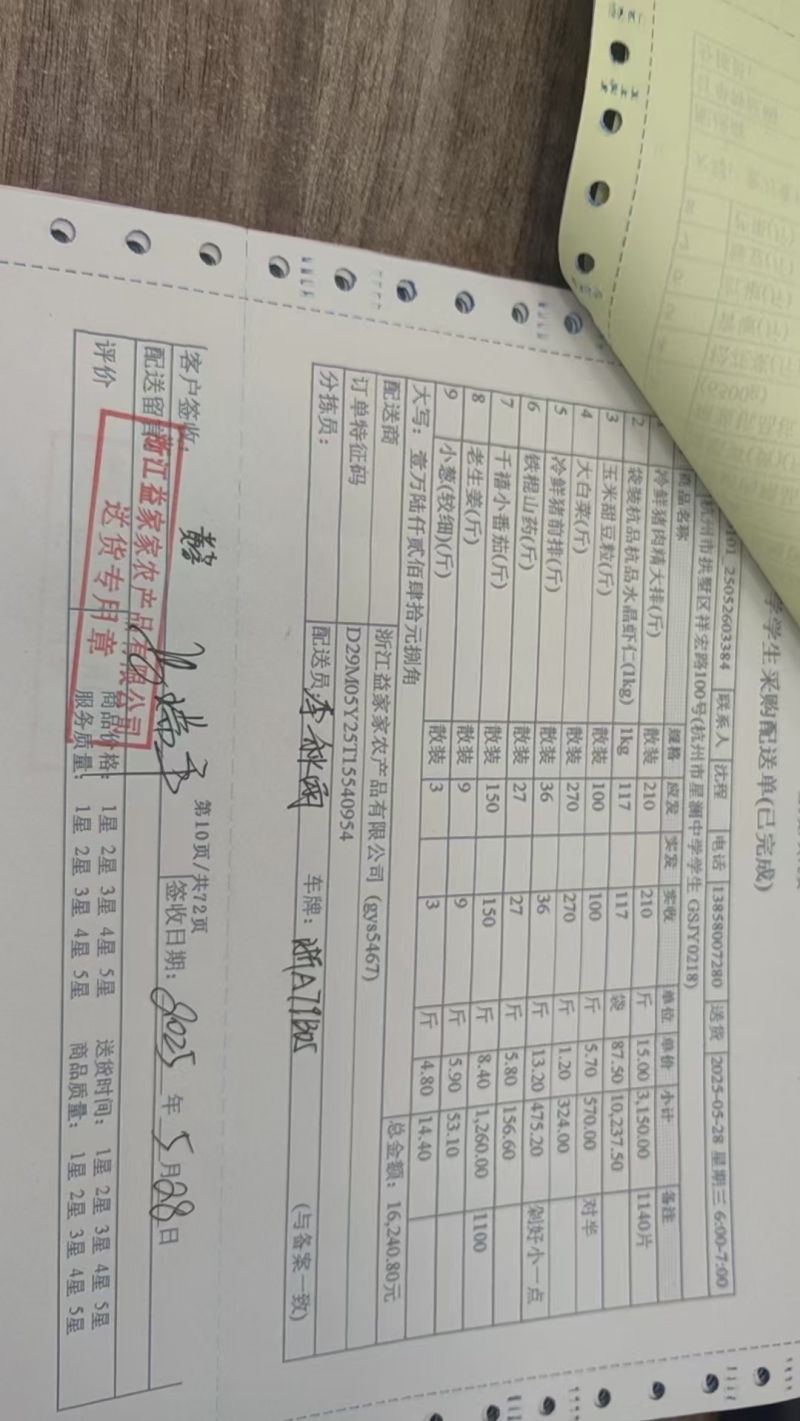 学学生采购配送单(已完成)
01_25052603384 联系人 沈程 电话 13858007280 送货 2025-05-28 星期三 6:00-7:00
杭州市拱墅区祥宏路100号(杭州市星澜中学学生 GSJY0218)
商品名称 规格 应发 实发 实收 单位 单价 小计 备注
冷鲜猪肉精大排(斤) 散装 210 210 斤 15.00 3,150.00 1140片
2 袋装杭品杭品水晶虾仁(1kg) 1kg 117 117 袋 87.50 10,237.50
3 玉米甜豆粒(斤) 散装 100 100 斤 5.70 570.00
4 大白菜(斤) 散装 270 270 斤 1.20 324.00 对半
5 冷鲜猪前排(斤) 散装 36 36 斤 13.20 475.20 剁好小一点
6 铁棍山药(斤) 散装 27 27 斤 5.80 156.60
7 千禧小番茄(斤) 散装 150 150 斤 8.40 1,260.00 1100
8 老生姜(斤) 散装 9 9 斤 5.90 53.10
9 小葱(较细)(斤) 散装 3 3 斤 4.80 14.40
大写: 壹万陆仟贰佰肆拾元捌角 总金额: 16,240.80元
配送商 浙江益家家农产品有限公司 (gys5467)
订单特征码 D29M05Y25T15540954
分拣员: 配送员 车牌: 浙A71B05 (与备案一致)
第10页/共72页
客户签收: 签收日期: 2025 年 5 月 28 日
配送留言
评价 商品价格: 1星 2星 3星 4星 5星 送货时间: 1星 2星 3星 4星 5星
服务质量: 1星 2星 3星 4星 5星 商品质量: 1星 2星 3星 4星 5星
浙江益家家农产品有限公司
送货专用章